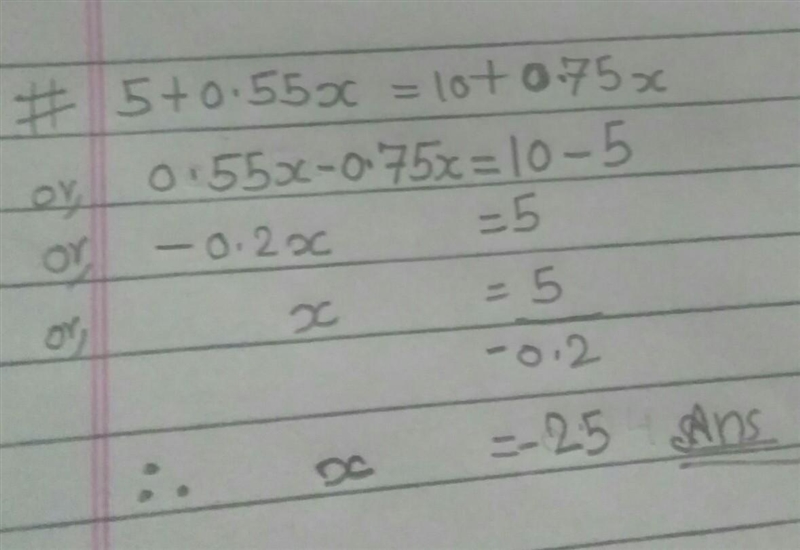 # 5+0.55x = 10+0.75x
or, 0.55x-0.75x=10-5
or, -0.2x =5
or, x = 5/-0.2
∴ x =-25 Ans